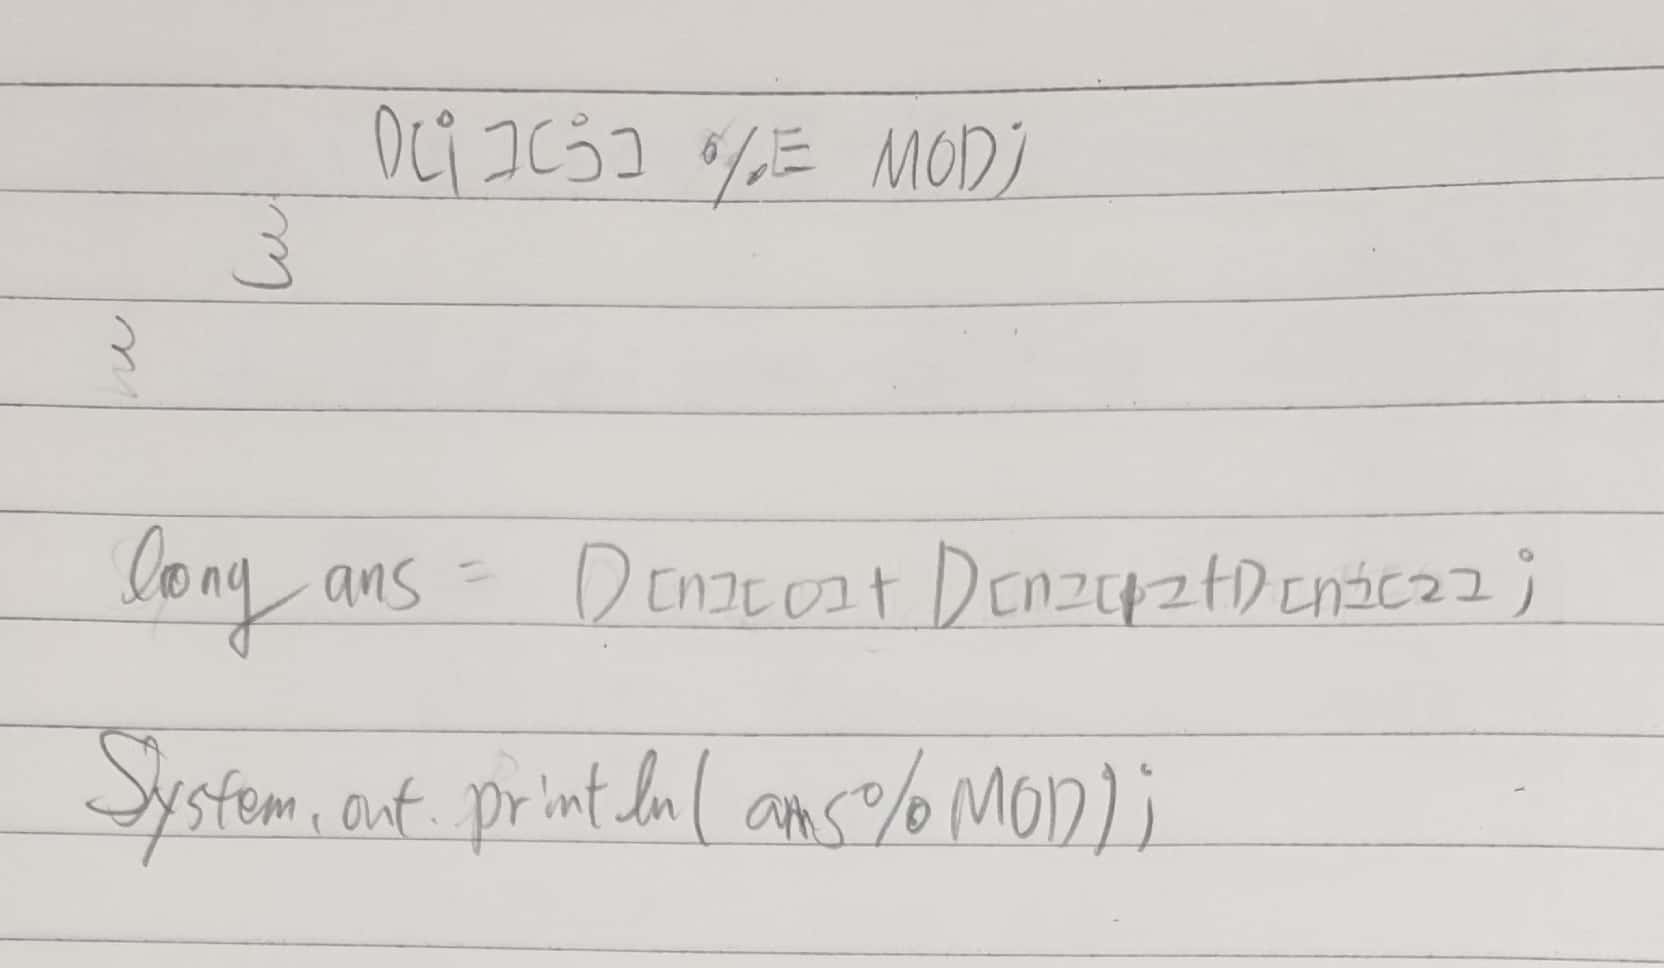 D[i][j] %= MOD;
}
}
long ans = D[n][0]+ D[n][1]+D[n][2];
System.out.println( ans%MOD);